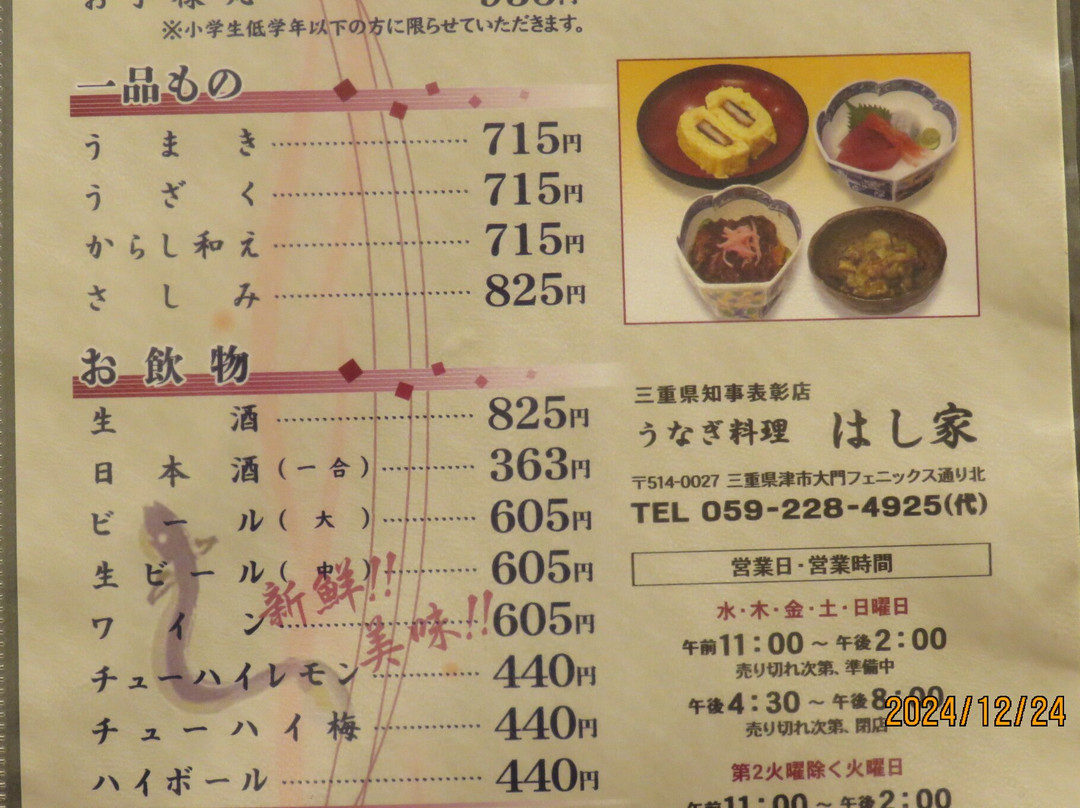 ※小学生低学年以下の方に限らせていただきます。
一品もの
うまき 715円
うざく 715円
からし和え 715円
さしみ 825円
お飲物
生酒 825円
日本酒(一合) 363円
ビール(大) 605円
生ビール(中) 605円
ワイン 605円
チューハイレモン 440円
チューハイ梅 440円
ハイボール 440円
新鮮!!
美味!!
三重県知事表彰店
うなぎ料理 はし家
〒514-0027 三重県津市大門フェニックス通り北
TEL 059-228-4925(代)
営業日・営業時間
水・木・金・土・日曜日
午前11:00～午後2:00
売り切れ次第、準備中
午後4:30～午後8:00
売り切れ次第、閉店
第2火曜除く火曜日
午前11:00～午後2:00
2024/12/24